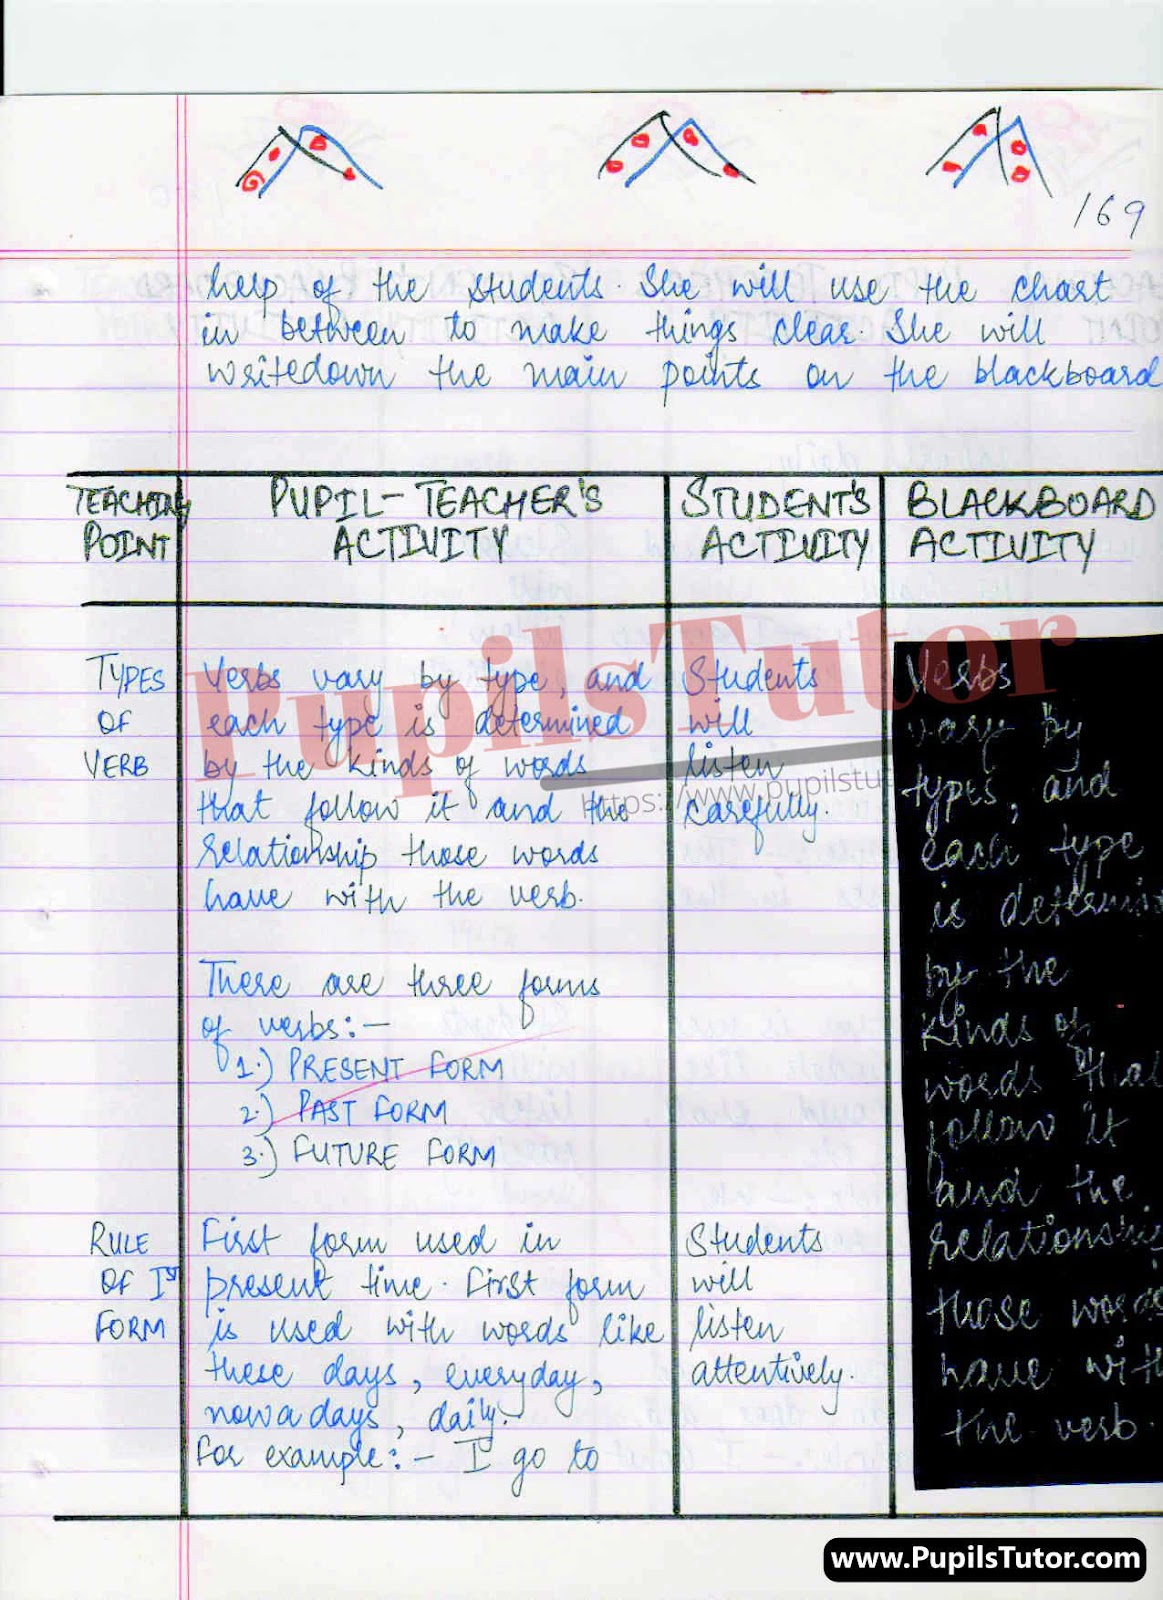 169
help of the students. She will use the chart
in between to make things clear. She will
writedown the main points on the blackboard
TEACHING
POINT
PUPIL-TEACHER'S
ACTIVITY
STUDENT'S
ACTIVITY
BLACKBOARD
ACTIVITY
TYPES
OF
VERB
Verbs vary by type, and
each type is determined
by the kinds of words
that follow it and the
relationship those words
have with the verb.
There are three forms
of verbs:-
1.) PRESENT FORM
2.) PAST FORM
3.) FUTURE FORM
Students
will
listen
carefully.
Verbs
vary by
types, and
each type
is determin
by the
kinds of
words that
follow it
and the
relationship
those words
have with
the verb.
RULE
OF Ist
FORM
First form used in
present time. First form
is used with words like
these days, everyday,
nowadays, daily.
For example:- I go to
Students
will
listen
attentively.
PupilsTutor
https://www.pupilstu
www.PupilsTutor.com